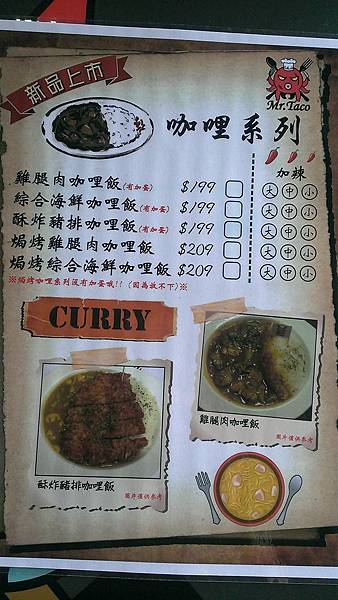 新品上市
Mr. Taco
咖哩系列
加辣
雞腿肉咖哩飯(有加蛋) $199 大 中 小
綜合海鮮咖哩飯(有加蛋) $199 大 中 小
酥炸豬排咖哩飯(有加蛋) $199 大 中 小
焗烤雞腿肉咖哩飯 $209 大 中 小
焗烤綜合海鮮咖哩飯 $209 大 中 小
※焗烤咖哩系列沒有加蛋哦!! (因為放不下)※
CURRY
雞腿肉咖哩飯
圖片僅供參考
酥炸豬排咖哩飯
圖片僅供參考